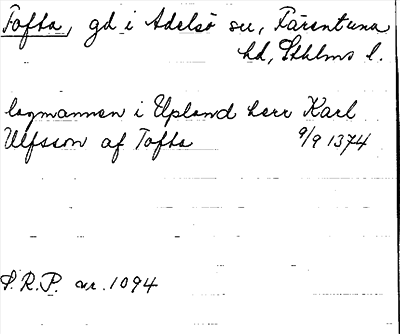 Tofta, gd i Adelsö sn, Färentuna
hd, Sthlms l.
lagmannen i Upland herr Karl
Ulfsson af Tofta 9/9 1374
S.R.P. nr. 1094